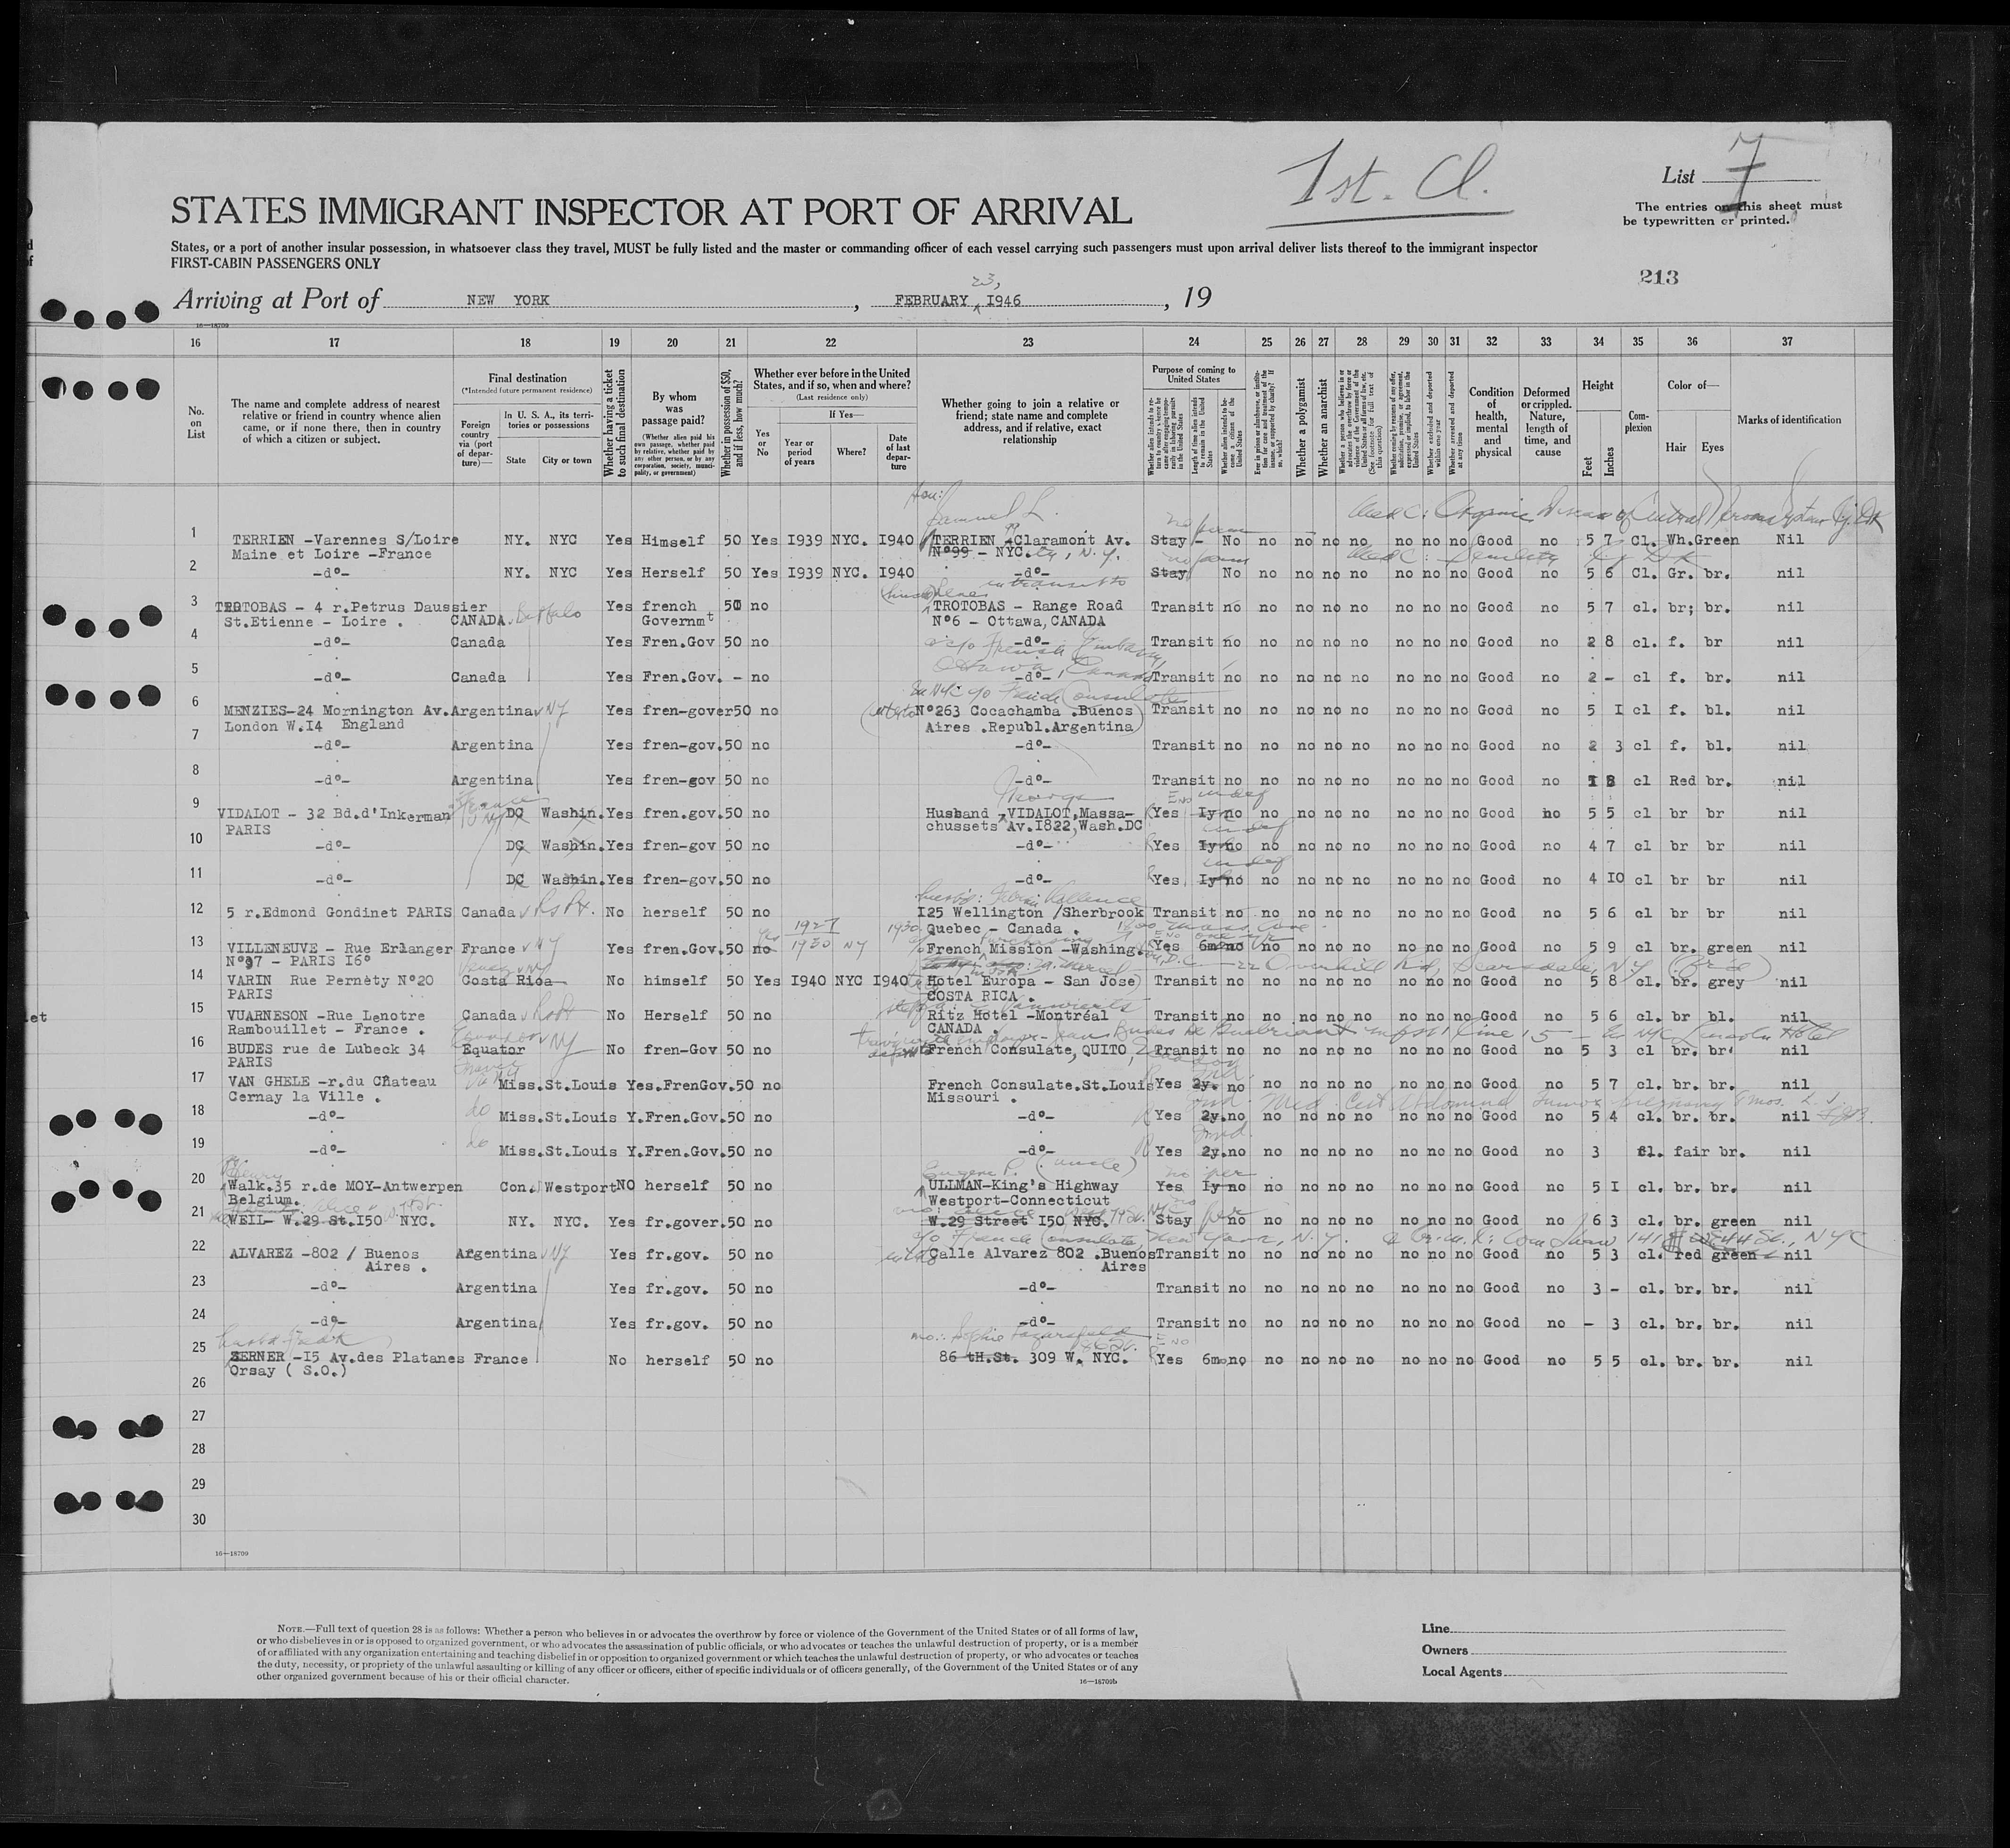 1st. Cl.
List 7
STATES IMMIGRANT INSPECTOR AT PORT OF ARRIVAL
The entries on this sheet must
be typewritten or printed.
States, or a port of another insular possession, in whatsoever class they travel, MUST be fully listed and the master or commanding officer of each vessel carrying such passengers must upon arrival deliver lists thereof to the immigrant inspector
FIRST-CABIN PASSENGERS ONLY
213
Arriving at Port of NEW YORK, FEBRUARY 23, I946, 19
16—18709
16 17 18 19 20 21 22 23 24 25 26 27 28 29 30 31 32 33 34 35 36 37
No. on List
The name and complete address of nearest relative or friend in country whence alien came, or if none there, then in country of which a citizen or subject.
Final destination
(*Intended future permanent residence)
Foreign country via (port of departure)—
In U. S. A., its territories or possessions
State
City or town
Whether having a ticket to such final destination
By whom was passage paid?
(Whether alien paid his own passage, whether paid by relative, whether paid by any other person, or by any corporation, society, municipality, or government)
Whether in possession of $50, and if less, how much?
Whether ever before in the United States, and if so, when and where?
(Last residence only)
If Yes—
Yes or No
Year or period of years
Where?
Date of last departure
Whether going to join a relative or friend; state name and complete address, and if relative, exact relationship
Purpose of coming to United States
Length of time alien intends to remain in the United States
Whether alien intends to become a citizen of the United States
Whether a polygamist
Whether an anarchist
Whether excluded and deported within one year
Whether arrested and deported at any time
Condition of health, mental and physical
Deformed or crippled. Nature, length of time, and cause
Height
Feet
Inches
Complexion
Color of—
Hair
Eyes
Marks of identification
Samuel L.
Med C: Organic Disease of Central Nervous System
1 TERRIEN -Varennes S/Loire NY. NYC Yes Himself 50 Yes I939 NYC. I940 TERRIEN -Claramont Av. Stay - No no no no no no no no Good no 5 7 Cl. Wh.Green Nil
Maine et Loire -France N°99 - NYC. N.Y.
Med C: Senility
2 -d°- NY. NYC Yes Herself 50 Yes I939 NYC. I940 -d°- Stay No no no no no no no no Good no 5 6 Cl. Gr. br. nil
in transit to
3 TROTOBAS - 4 r.Petrus Daussier Buffalo Yes french 50 no TROTOBAS - Range Road Transit no no no no no no no no Good no 5 7 cl. br; br. nil
St.Etienne - Loire . CANADA Governmt N°6 - Ottawa, CANADA
4 -d°- Canada Yes Fren.Gov 50 no -d°- Transit no no no no no no no no Good no 2 8 cl. f. br nil
c/o French Embassy
Ottawa, Canada
5 -d°- Canada Yes Fren.Gov. - no -d°- Transit no no no no no no no no Good no 2 - cl f. br. nil
c/o French Consulate
6 MENZIES-24 Mornington Av. Argentina NY Yes fren-gover50 no N°263 Cocachamba .Buenos Transit no no no no no no no no Good no 5 I cl f. bl. nil
London W.I4 England Aires .Republ.Argentina
7 -d°- Argentina Yes fren-gov.50 no -d°- Transit no no no no no no no no Good no 2 3 cl f. bl. nil
8 -d°- Argentina Yes fren-gov 50 no -d°- Transit no no no no no no no no Good no I 8 cl Red br. nil
France indef
9 VIDALOT - 32 Bd.d'Inkerman DC Washin. Yes fren.gov.50 no Husband VIDALOT, Massa- Yes Iy no no no no no no no no Good no 5 5 cl br br nil
PARIS chussets Av.I822, Wash.DC
indef
10 -d°- DC Washin. Yes fren-gov 50 no -d°- Yes Iy no no no no no no no no Good no 4 7 cl br br nil
indef
11 -d°- DC Washin. Yes fren-gov.50 no -d°- Yes Iy no no no no no no no no Good no 4 IO cl br br nil
12 5 r.Edmond Gondinet PARIS Canada No herself 50 no I25 Wellington /Sherbrook Transit no no no no no no no no Good no 5 6 cl br br nil
Quebec - Canada .
yes 1927 1930 NY 1930
13 VILLENEUVE - Rue Erlanger France NY Yes fren.Gov.50 no French Mission -Washing. Yes 6m no no no no no no no no Good no 5 9 cl br. green nil
N°97 - PARIS I6° 22 Overhill Rd, Scarsdale, N.Y.
14 VARIN Rue Pernèty N°20 Costa Rica No himself 50 Yes I940 NYC I940 Hotel Europa - San Jose Transit no no no no no no no no Good no 5 8 cl. br. grey nil
PARIS COSTA RICA .
15 VUARNESON -Rue Lenotre Canada No Herself 50 no Ritz Hotel -Montréal Transit no no no no no no no no Good no 5 6 cl. br bl. nil
Rambouillet - France . CANADA .
Lincoln Hotel
16 BUDES rue de Lubeck 34 Equator NY No fren-Gov 50 no French Consulate, QUITO, Transit no no no no no no no no Good no 5 3 cl br. br. nil
PARIS
17 VAN GHELE -r.du Château Miss.St.Louis Yes.FrenGov.50 no French Consulate.St.Louis Yes 2y. no no no no no no no no Good no 5 7 cl. br. br. nil
Cernay la Ville . Missouri .
Med. Cert Abdominal Tumor pregnancy
18 -d°- do Miss.St.Louis Y.Fren.Gov.50 no -d°- Yes 2y.no no no no no no no no Good no 5 4 cl. br. br. nil
19 -d°- do Miss.St.Louis Y.Fren.Gov.50 no -d°- Yes 2y.no no no no no no no no Good no 3 cl. fair br. nil
Eugene P. (uncle)
20 Walk.35 r.de MOY-Antwerpen Con. Westport NO herself 50 no ULLMAN-King's Highway Yes Iy no no no no no no no no Good no 5 I cl. br. br. nil
Belgium. Westport-Connecticut
21 WEIL- W.29 St.I50 NYC. NY. NYC. Yes fr.gover.50 no W.29 Street I50 NYC. Stay no no no no no no no no Good no 6 3 cl. br. green nil
c/o French Consulate, New York, N.Y.
22 ALVAREZ -802 / Buenos Argentina NY Yes fr.gov. 50 no Calle Alvarez 802 .Buenos Transit no no no no no no no no Good no 5 3 cl. red green nil
Aires . Aires
23 -d°- Argentina Yes fr.gov. 50 no -d°- Transit no no no no no no no no Good no 3 - cl. br. br. nil
24 -d°- Argentina Yes fr.gov. 50 no -d°- Transit no no no no no no no no Good no - 3 cl. br. br. nil
mo.: Sophie Lazarsfeld
25 ZERNER -I5 Av.des Platanes France No herself 50 no 86 tH.St. 309 W. NYC. Yes 6m no no no no no no no no Good no 5 5 cl. br. br. nil
Orsay ( S.O.)
26
27
28
29
30
16—18709
NOTE.—Full text of question 28 is as follows: Whether a person who believes in or advocates the overthrow by force or violence of the Government of the United States or of all forms of law,
or who disbelieves in or is opposed to organized government, or who advocates the assassination of public officials, or who advocates or teaches the unlawful destruction of property, or is a member
of or affiliated with any organization entertaining and teaching disbelief in or opposition to organized government or which teaches the unlawful destruction of property, or who advocates or teaches
the duty, necessity, or propriety of the unlawful assaulting or killing of any officer or officers, either of specific individuals or of officers generally, of the Government of the United States or of any
other organized government because of his or their official character.
16—18709b
Line
Owners
Local Agents